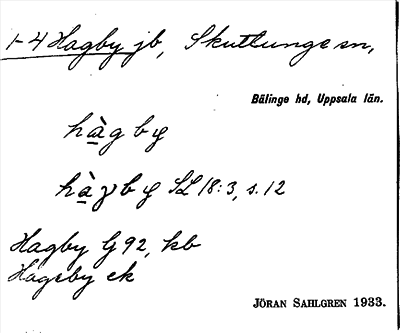 1-4 Hagby jb, Skuttunge sn,
Bälinge hd, Uppsala län.
hàg by
hàγb y SL 18:3, s. 12
Hagby G 92, kb
Hageby ek
JÖRAN SAHLGREN 1933.